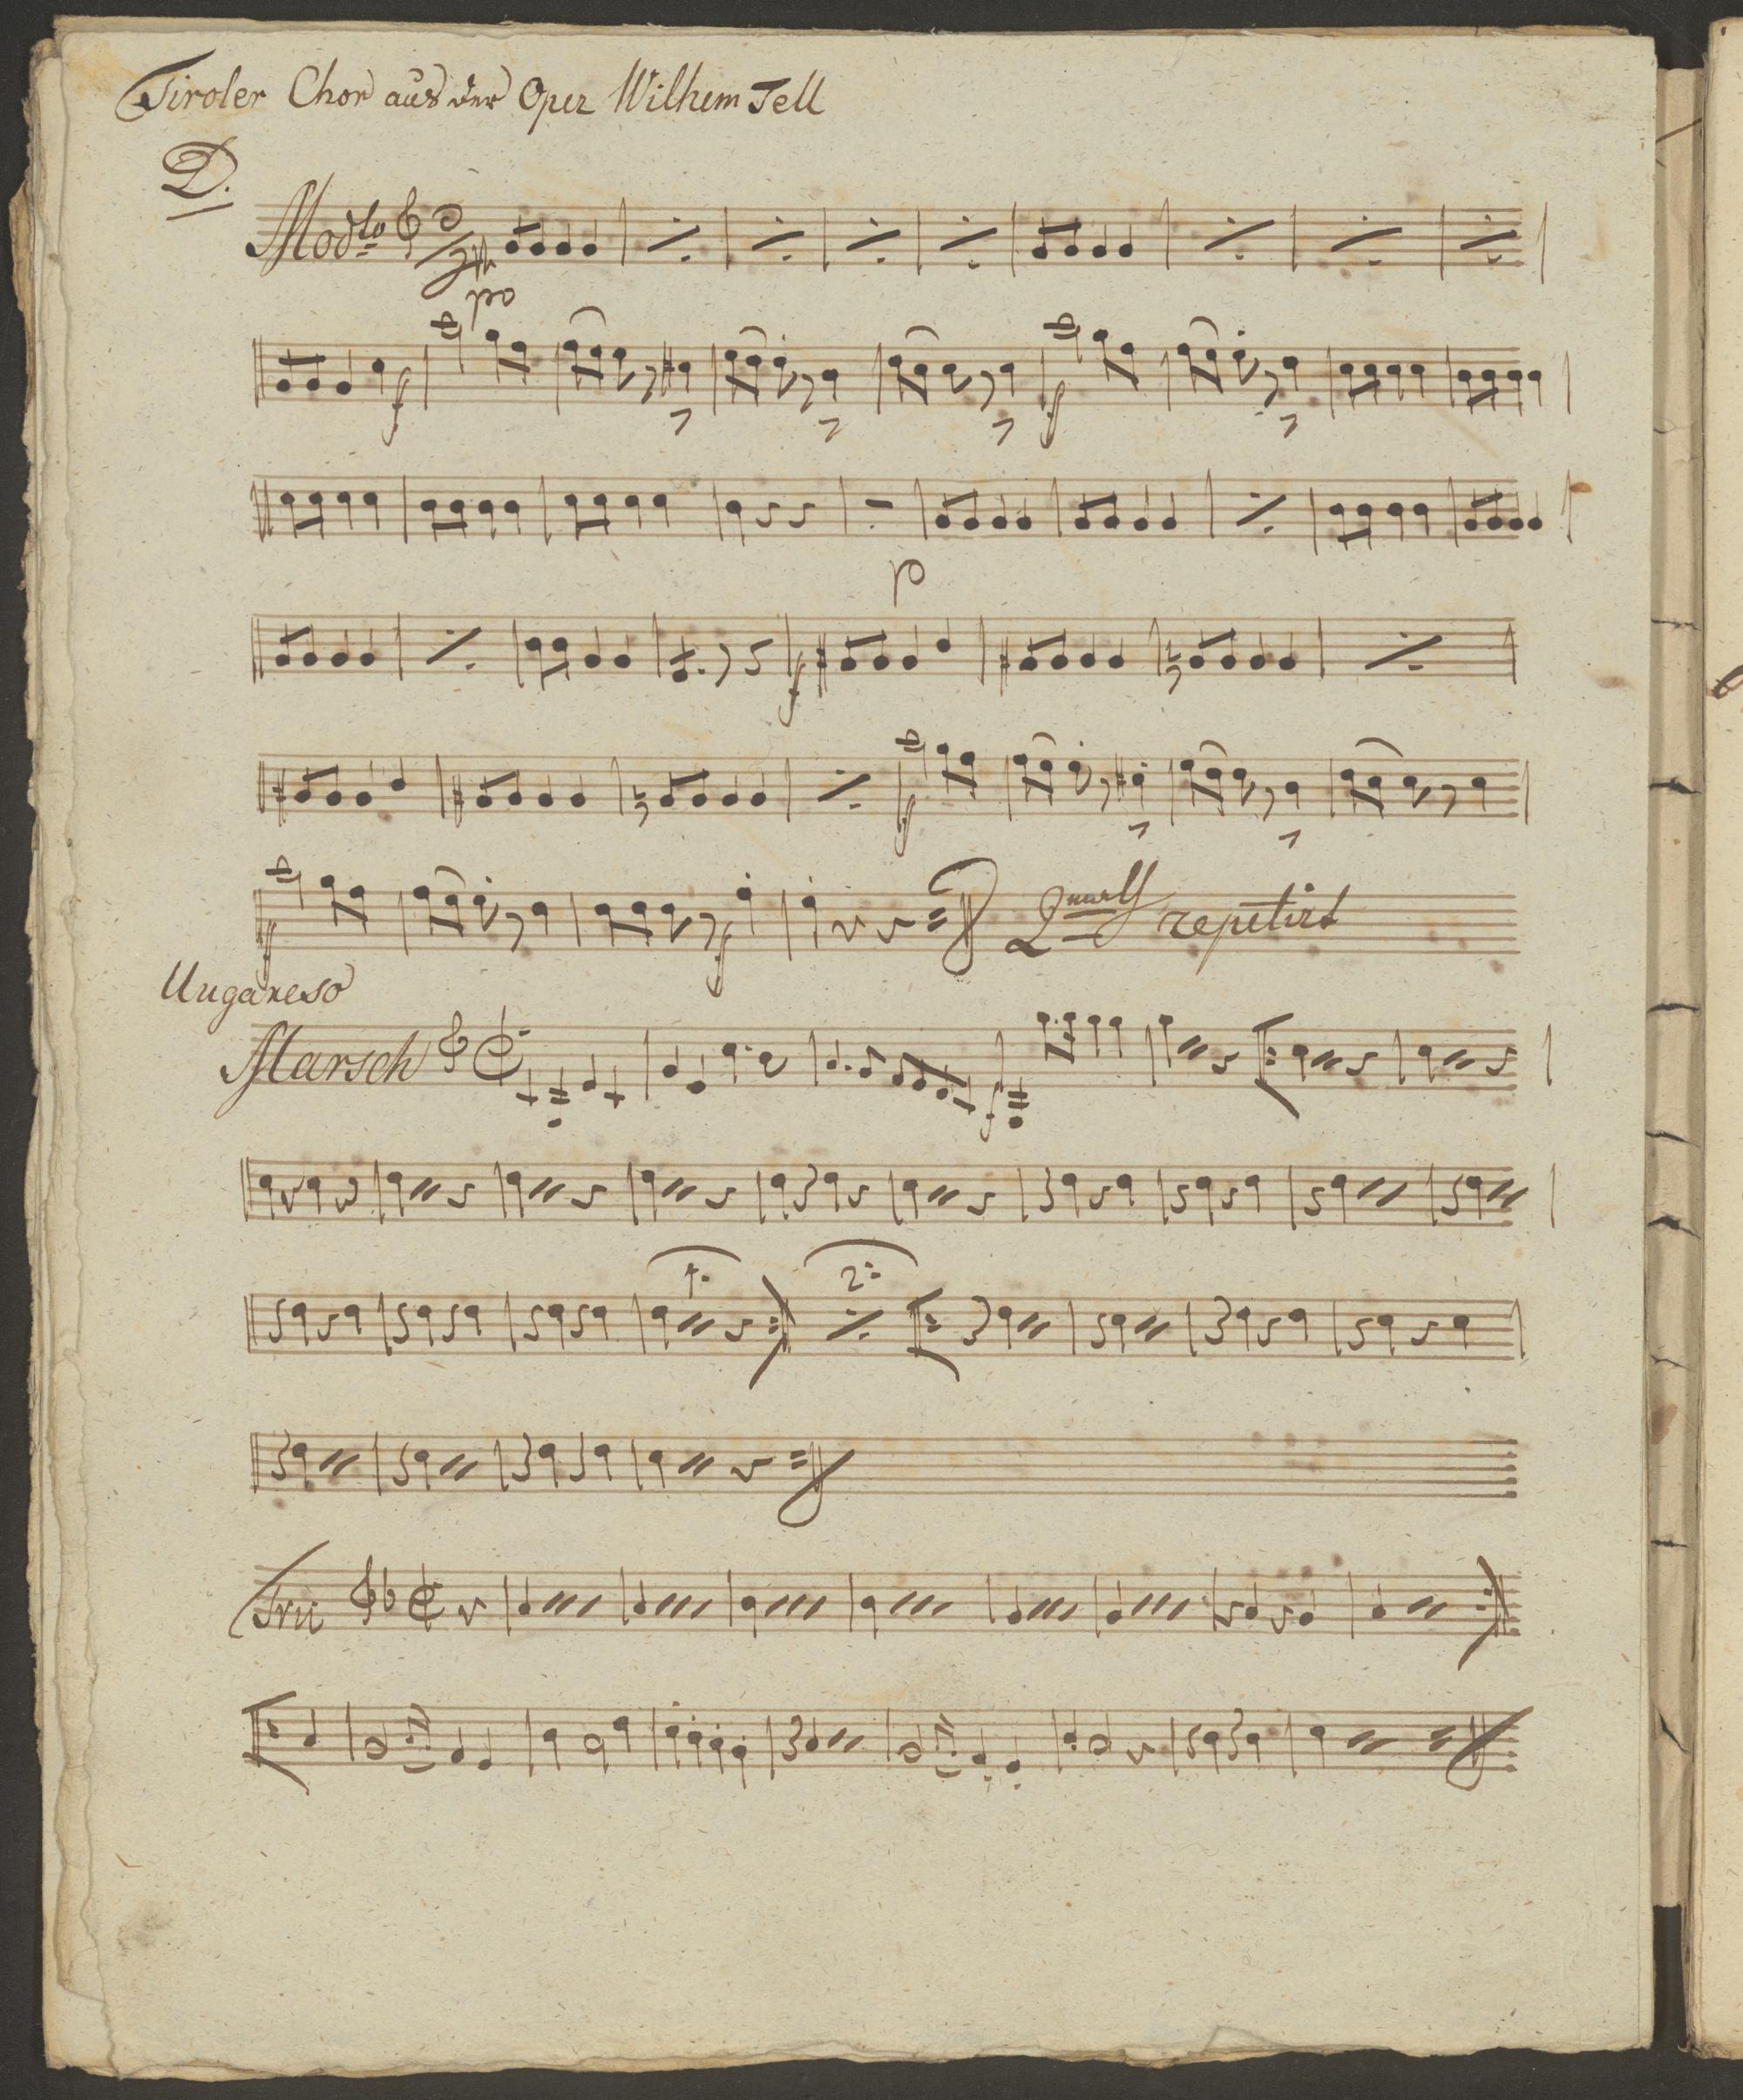 Tiroler Chor aus der Oper Wilhem Tell
D.
Modto
po
f
f
p
f
f
f
f
2mal repetirt
Ungareso
Marsch
f
1.
2:
Trio